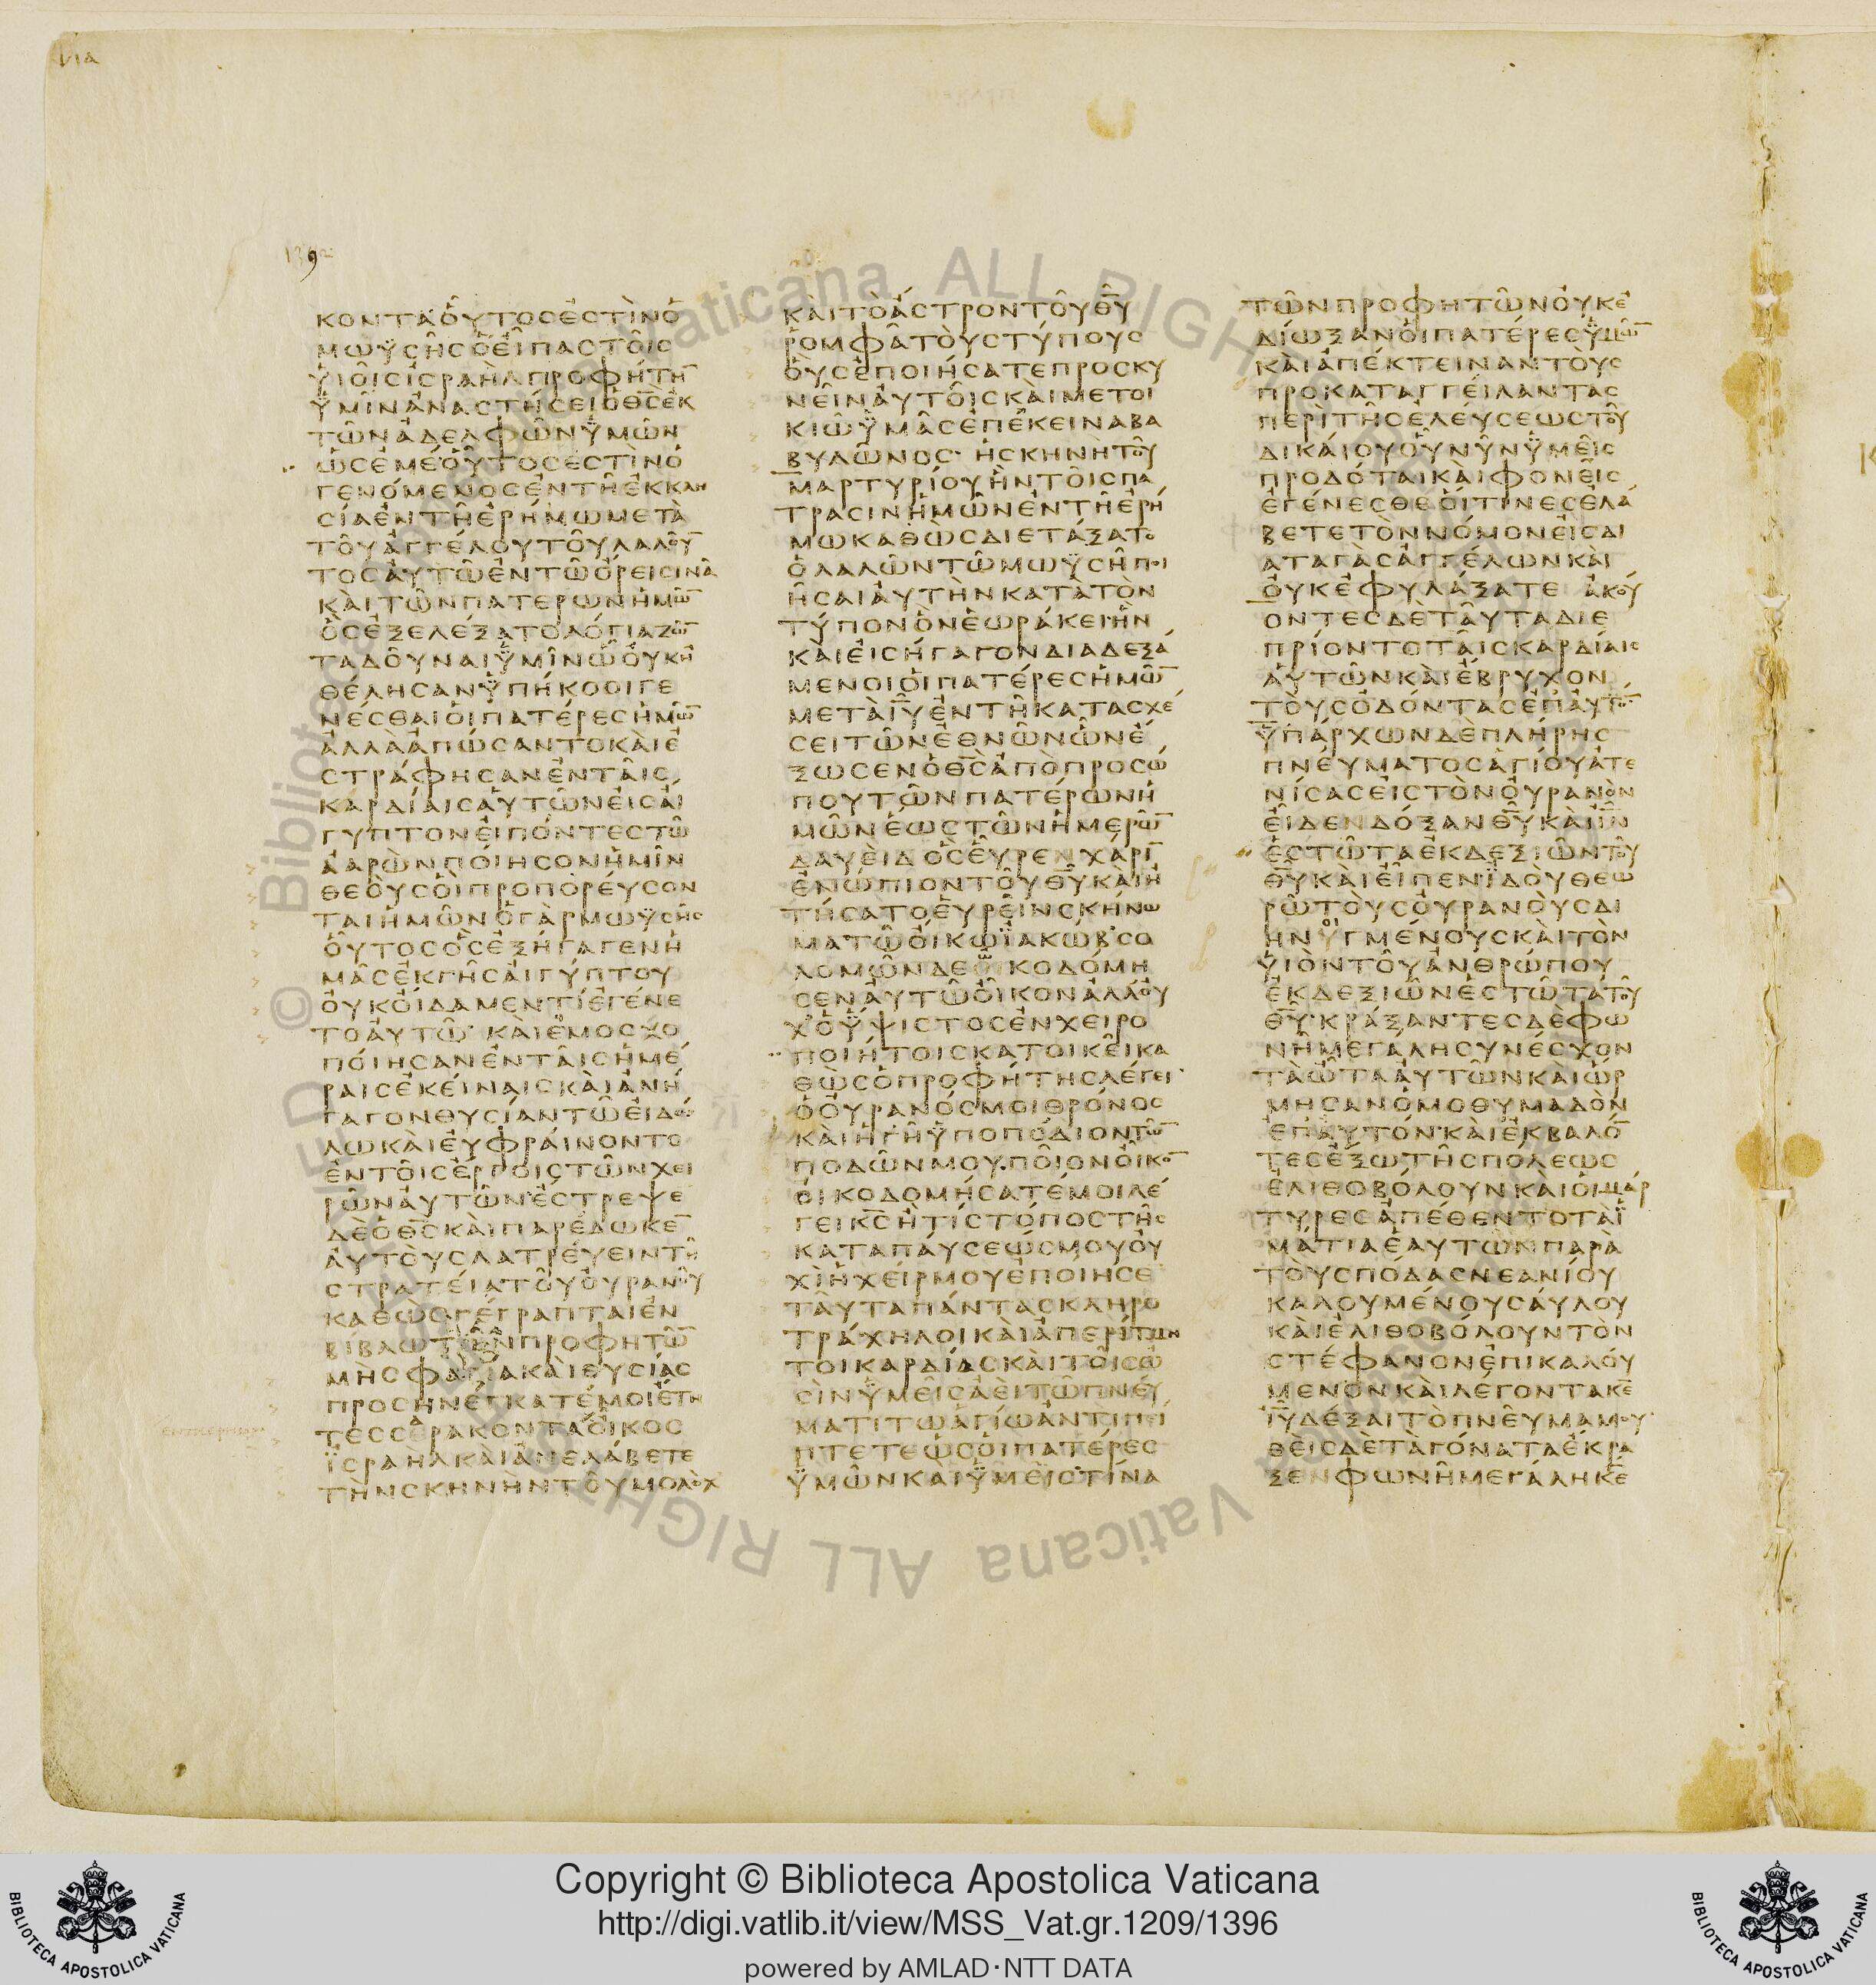 κοντα ουτος εστιν ο
μωϋσης ο ειπας τοις
υιοις ισραηλ προφητη̅
ϋμιν αναστησει ο θ̅ς̅ εκ
των αδελφων ϋμων
ως εμε ουτος εστιν ο
γενομενος εν τη εκκλη
σια εν τη ερημω μετα
του αγγελου του λαλουν
τος αυτω εν τω ορει σινα
και των πατερων ημω̅
ος εξελεξατο λογια ζω̅
τα δουναι ϋμιν ω ουκ η
θελησαν ϋπηκοοι γε
νεσθαι οι πατερες ημω̅
αλλα απωσαντο και ε
στραφησαν εν ταις
καρδιαις αυτων εις αι
γυπτον ειποντες τω
ααρων ποιησον ημιν
θεους οι προπορευσον
ται ημων ο γαρ μωϋσης
ουτος ος εξηγαγεν η
μας εκ γης αιγυπτου
ουκ οιδαμεν τι εγενε
το αυτω και εμοσχο
ποιησαν εν ταις ημε
ραις εκειναις και ανη
γαγον θυσιαν τω ειδω
λω και ευφραινοντο
εν τοις εργοις των χει
ρων αυτων εστρεψε
δε ο θ̅ς̅ και παρεδωκε̅
αυτους λατρευειν τη
στρατεια του ουρανου
καθως γεγραπται εν
βιβλω των προφητω̅
μη σφαγια και θυσιας
προσηνεγκατε μοι ετη
τεσσερακοντα οικος
ϊσραηλ και ανελαβετε
την σκηνην του μολοχ
και το αστρον του θ̅υ̅
ρομφα τους τυπους
ους εποιησατε προσκυ
νειν αυτοις και μετοι
κιω ϋμας επεκεινα βα
βυλωνος η σκηνη του
μαρτυριου ην τοις πα
τρασιν ημων εν τη ερη
μω καθως διεταξατο
ο λαλων τω μωϋση ποι
ησαι αυτην κατα τον
τυπον ον εωρακει ην
και εισηγαγον διαδεξα
μενοι οι πατερες ημω̅
μετα ι̅υ̅ εν τη κατασχε
σει των εθνων ων ε
ξωσεν ο θ̅ς̅ απο προσω
που των πατερων η
μων εως των ημερω̅
δαυειδ ος ευρεν χαρι̅
ενωπιον του θ̅υ̅ και η
τησατο ευρειν σκηνω
μα τω οικω ϊακωβ σο
λομων δε οικοδομη
σεν αυτω οικον αλλ ου
χ ο ϋψιστος εν χειρο
ποιητοις κατοικει κα
θως ο προφητης λεγει
ο ουρανος μοι θρονος
και η γη ϋποποδιον τω̅
ποδων μου ποιον οικο̅
οικοδομησατε μοι λε
γει κ̅ς̅ η τις τοπος της
καταπαυσεως μου ου
χι η χειρ μου εποιησε̅
ταυτα παντα σκληρο
τραχηλοι και απεριτμη
τοι καρδιας και τοις ω
σιν ϋμεις αει τω πνευ
ματι τω αγιω αντιπει
πτετε ως οι πατερες
ϋμων και ϋμεις τινα
των προφητων ουκ ε
διωξαν οι πατερες ϋμω̅
και απεκτειναν τους
προκαταγγειλαντας
περι της ελευσεως του
δικαιου ου νυν ϋμεις
προδοται και φονεις
εγενεσθε οιτινες ελα
βετε τον νομον εις δι
αταγας αγγελων και
ουκ εφυλαξατε ακου
οντες δε ταυτα διε
πριοντο ταις καρδιαις
αυτων και εβρυχον
τους οδοντας επ αυτο̅
ϋπαρχων δε πληρης
πνευματος αγιου ατε
νισας εις τον ουρανον
ειδεν δοξαν θ̅υ̅ και ι̅ν̅
εστωτα εκ δεξιων του
θ̅υ̅ και ειπεν ϊδου θεω
ρω τους ουρανους δι
ηνυγμενους και τον
υιον του ανθρωπου
εκ δεξιων εστωτα του
θ̅υ̅ κραξαντες δε φω
νη μεγαλη συνεσχον
τα ωτα αυτων και ωρ
μησαν ομοθυμαδον
επ αυτον και εκβαλο̅
τες εξω της πολεως
ελιθοβολουν και οι μαρ
τυρες απεθεντο τα ϊ
ματια εαυτων παρα
τους ποδας νεανιου
καλουμενου σαυλου
και ελιθοβολουν τον
στεφανον επικαλου
μενον και λεγοντα κ̅ε̅
ι̅υ̅ δεξαι το πνευμα μου
θεις δε τα γονατα εκρα
ξεν φωνη μεγαλη κ̅ε̅
Copyright © Biblioteca Apostolica Vaticana
http://digi.vatlib.it/view/MSS_Vat.gr.1209/1396
powered by AMLAD·NTT DATA